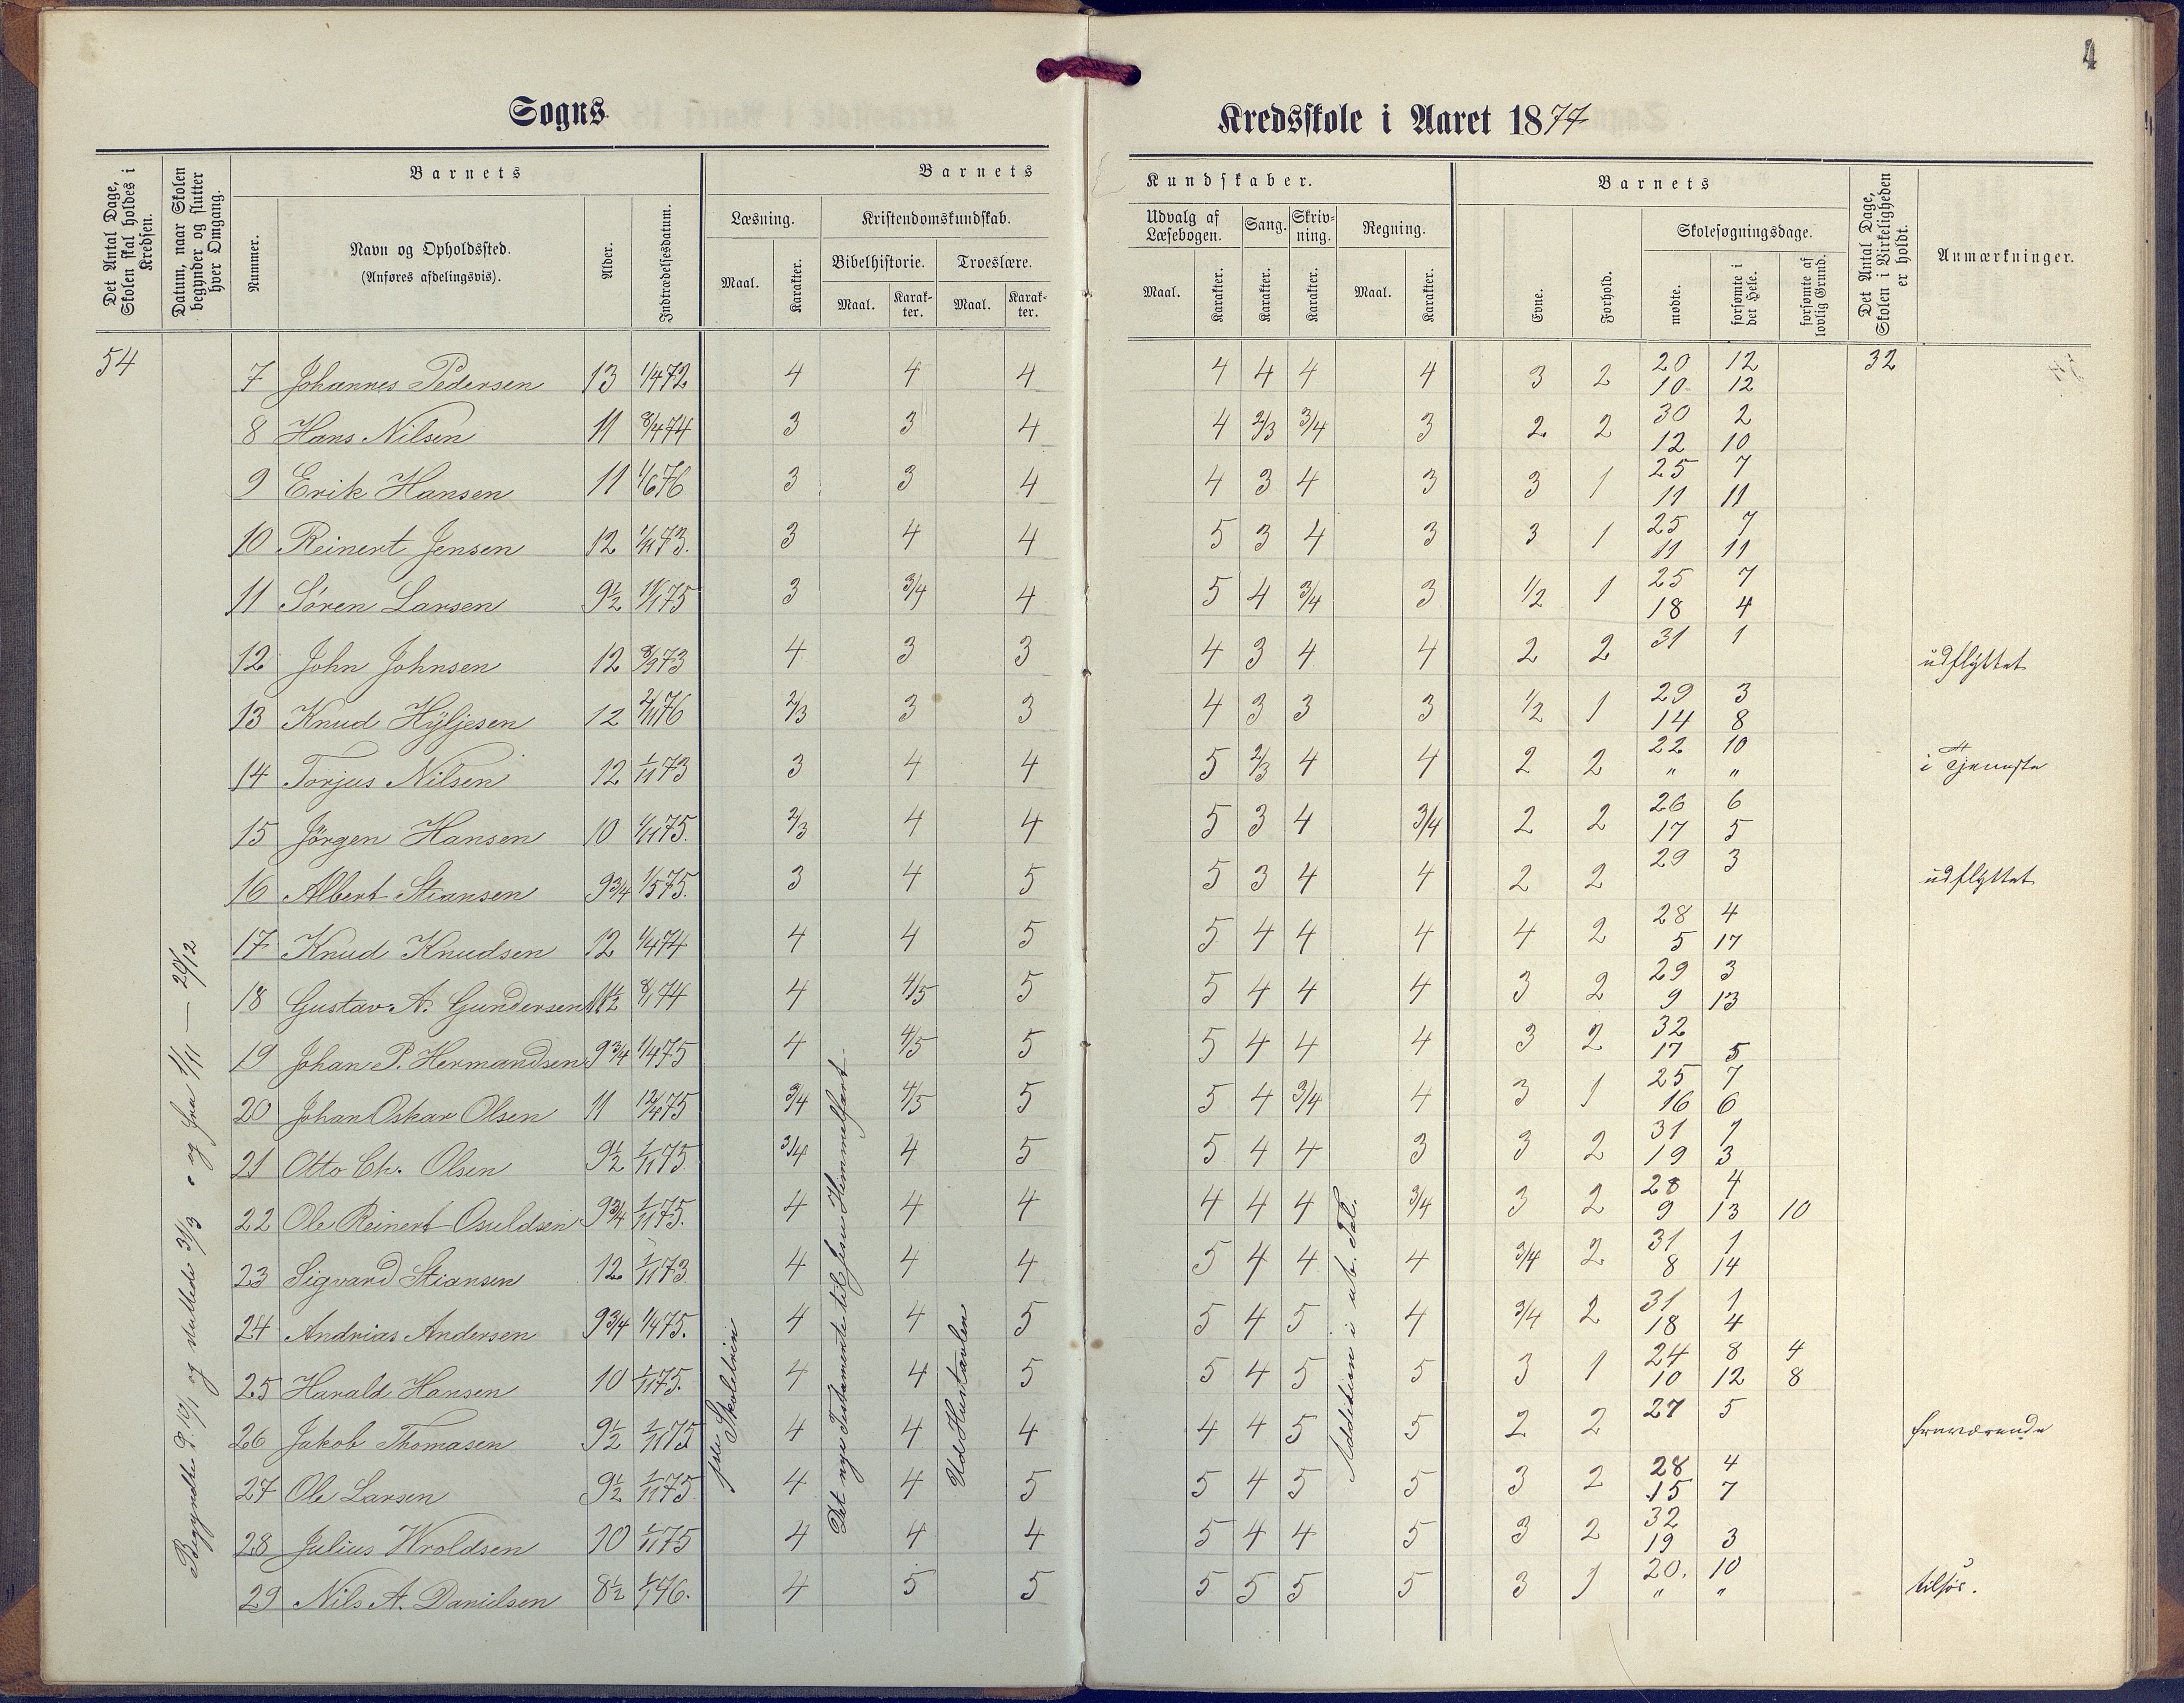 4
Sogns
Kredsskole i Aaret 1877
Det Antal Dage, Skolen skal holdes i Kredsen.
Datum, naar Skolen begynder og slutter hver Omgang.
Barnets
Nummer.
Navn og Opholdssted.
(Anføres afdelingsvis).
Alder.
Indtrædelsesdatum.
Barnets
Læsning.
Maal.
Karakter.
Kristendomskundskab.
Bibelhistorie.
Maal.
Karakter.
Troeslære.
Maal.
Karakter.
Kundskaber.
Udvalg af Læsebogen.
Maal.
Karakter.
Sang.
Karakter.
Skrivning.
Karakter.
Regning.
Maal.
Karakter.
Barnets
Evne.
Forhold.
Skolesøgningsdage.
mødte.
forsømte i det Hele.
forsømte af lovlig Grund.
Det Antal Dage, Skolen i Virkeligheden er holdt.
Anmærkninger.
54
7 Johannes Pedersen 13 1/4 72 4 4 4 4 4 4 4 3 2 20 12 32
10 12
8 Hans Nilsen 11 8/4 74 3 3 4 4 2/3 3/4 3 2 2 30 2
12 10
9 Erik Hansen 11 1/6 76 3 3 4 4 3 4 3 3 1 25 7
11 11
10 Reinert Jensen 12 1/11 73. 3 4 4 5 3 4 3 3 1 25 7
11 11
11 Søren Larsen 9½ 11/1 75 3 3/4 4 5 4 3/4 3 1/2 1 25 7
18 4
12 John Johnsen 12 8/9 73 4 3 3 4 3 4 4 2 2 31 1 udflyttet
13 Knud Hyljesen 12 2/11 76 2/3 3 3 4 3 3 3 1/2 1 29 3
14 8
14 Torjus Nilsen 12 1/11 73 3 4 4 5 2/3 4 4 2 2 22 10 i Tjeneste
" "
15 Jörgen Hansen 10 1/11 75. 2/3 4 4 5 3 4 3/4 2 2 26 6
17 5
16 Albert Stiansen 9¾ 1/5 75. 3 4 5 5 3 4 4 2 2 29 3 udflyttet
17 Knud Knudsen 12 1/4 74 4 4 5 5 4 4 4 4 2 28 4
5 17
18 Gustav A. Gundersen 11½ 8/1 74 4 4/5 5 5 4 4 4 3 2 29 3
9 13
19 Johan P. Hermandsen 9¾ 1/4 75 4 4/5 5 5 4 4 4 3 2 32
17 5
20 Johan Oskar Olsen 11 12/4 75 3/4 4/5 5 5 4 3/4 4 3 1 25 7
16 6
21 Otto Ch. Olsen 9½ 1/11 75. 3/4 4 5 5 4 4 3 3 2 31 1
19 3
22 Ole Reinert Osuldsen 9¾ 1/11 75. 4 4 4 4 4 4 3/4 3 2 28 4
9 13 10
23 Sigvard Stiansen 12 1/11 73 4 4 4 5 4 4 4 3/4 2 31 1
8 14
24 Andrias Andersen 9¾ 1/4 75. 4 4 5 5 4 5 4 3/4 2 31 1
18 4
25 Harald Hansen 10 1/11 75. 4 4 5 5 4 5 5 3 1 24 8 4
10 12 8
26 Jakob Thomasen 9½ 1/11 75 4 4 4 4 4 5 5 2 2 27 5 fraværende
27 Ole Larsen 9½ 1/11 75 4 4 5 5 4 5 5 3 2 28 4
15 7
28 Julius Wroldsen 10 1/11 75 4 4 4 5 4 4 5 3 2 32
19 3
29 Nils A. Danielsen 8½ 4 5 5 5 5 5 5 3 1 20. 10 tilsøs.
" "
Begyndte d. 10/1 og sluttede 31/3 og fra 1/11 — 20/12
Skoletrin
Det nye Testamente til Jesu Himmelfart
Ud Hustavlen
Addition i ub. Tal.